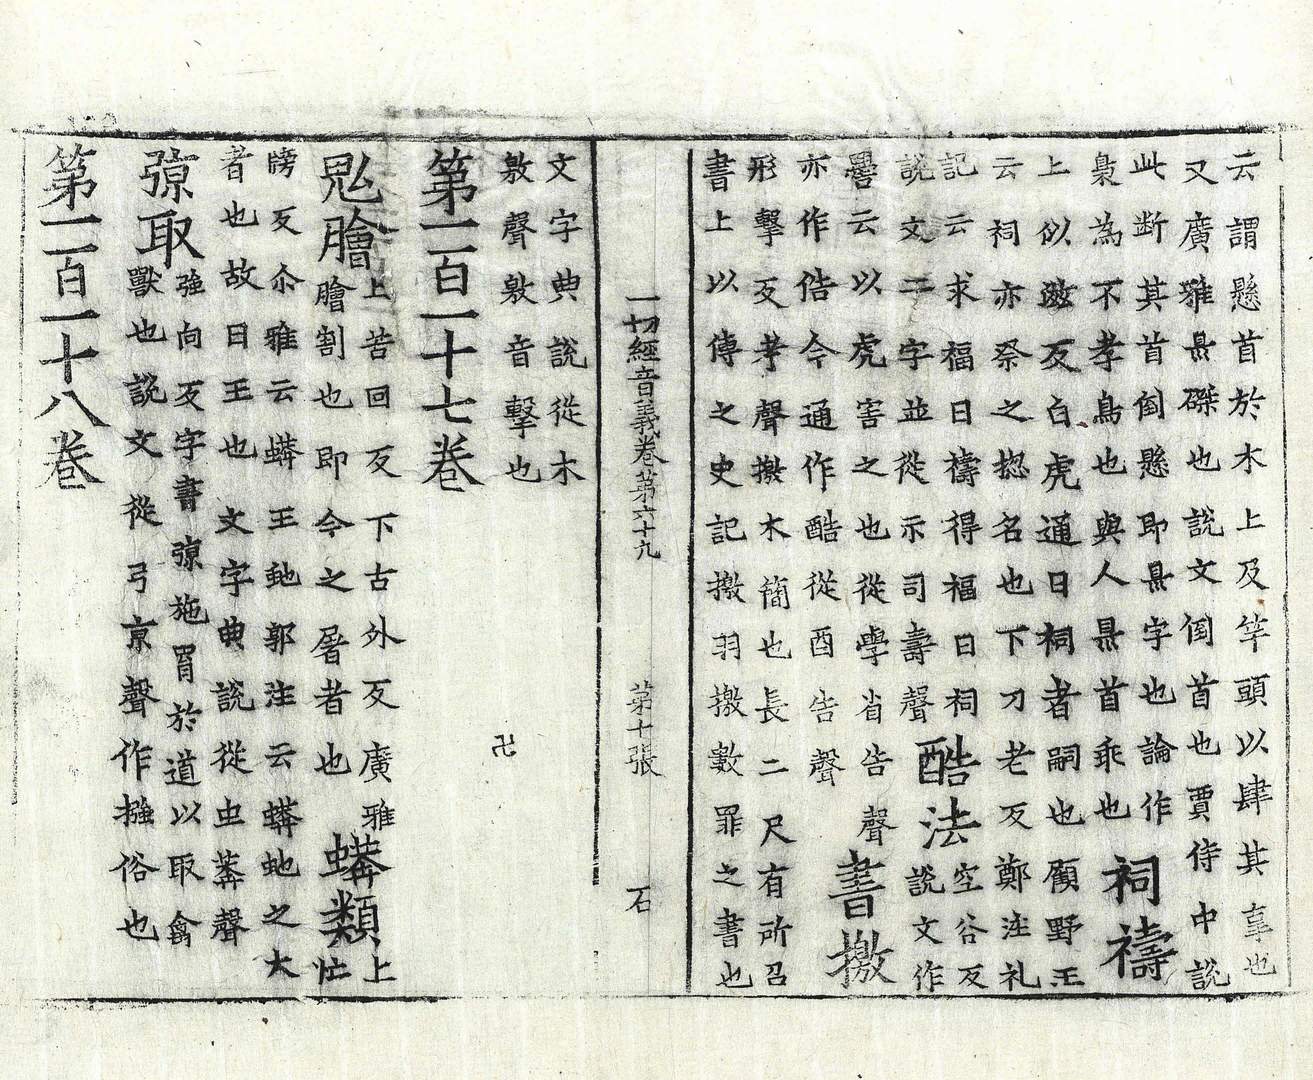 云謂懸首於木上及竿頭以肆其辜也
又廣雅㬎磔也說文倒首也賈侍中說
此断其首倒懸即㬎字也論作
梟為不孝鳥也與人㬎首乖也祠禱
上似滋反白虎通曰祠者嗣也顧野王
云祠亦祭之惣名也下刀老反鄭注礼
記云求福曰禱得福曰祠
說文二字並從示司壽聲酷法空谷反
說文作
嚳云以虎害之也從學省告聲
亦作俈今通作酷從酉告聲書檄
形擊反考聲檄木簡也長二尺有所召
書上以傳之史記檄羽檄數罪之書也
一切經音義卷第六十九 第十張 石
文字典說從木
敫聲敫音擊也
卍
第一百一十七卷
魁膾上苦回反下古外反廣雅
膾割也即今之屠者也蟒類上忙
牓反尒雅云蟒王虵郭注云蟒虵之大
者也故曰王也文字典說從虫莽聲
弶取強向反字書弶施罥於道以取禽
獸也說文從弓京聲作摾俗也
第一百一十八卷